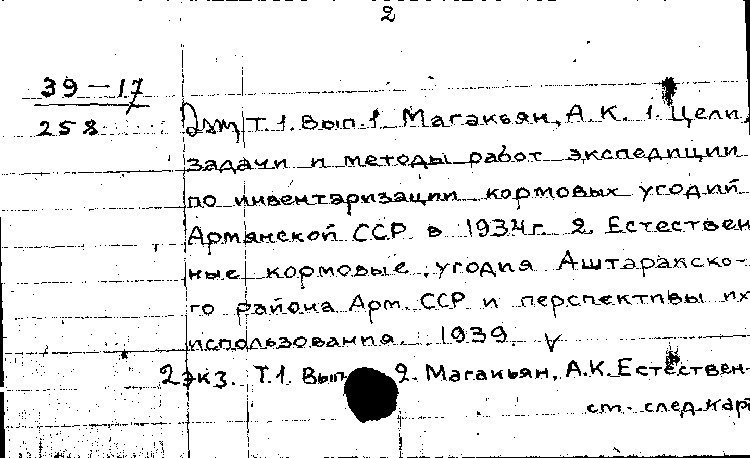 2
39-17
258
Т.1. Вып.1 Магакьян, А.К. 1. Цели,
задачи и методы работ экспедиции
по инвентаризации кормовых угодий
Армянской ССР в 1934г 2. Естествен
ные кормовые угодия Аштаракско-
го района Арм. ССР и перспективы их
использования. 1939. V
2экз. Т.1. Вып. 2. Магакьян, А.К. Естествен-
см. след. карт